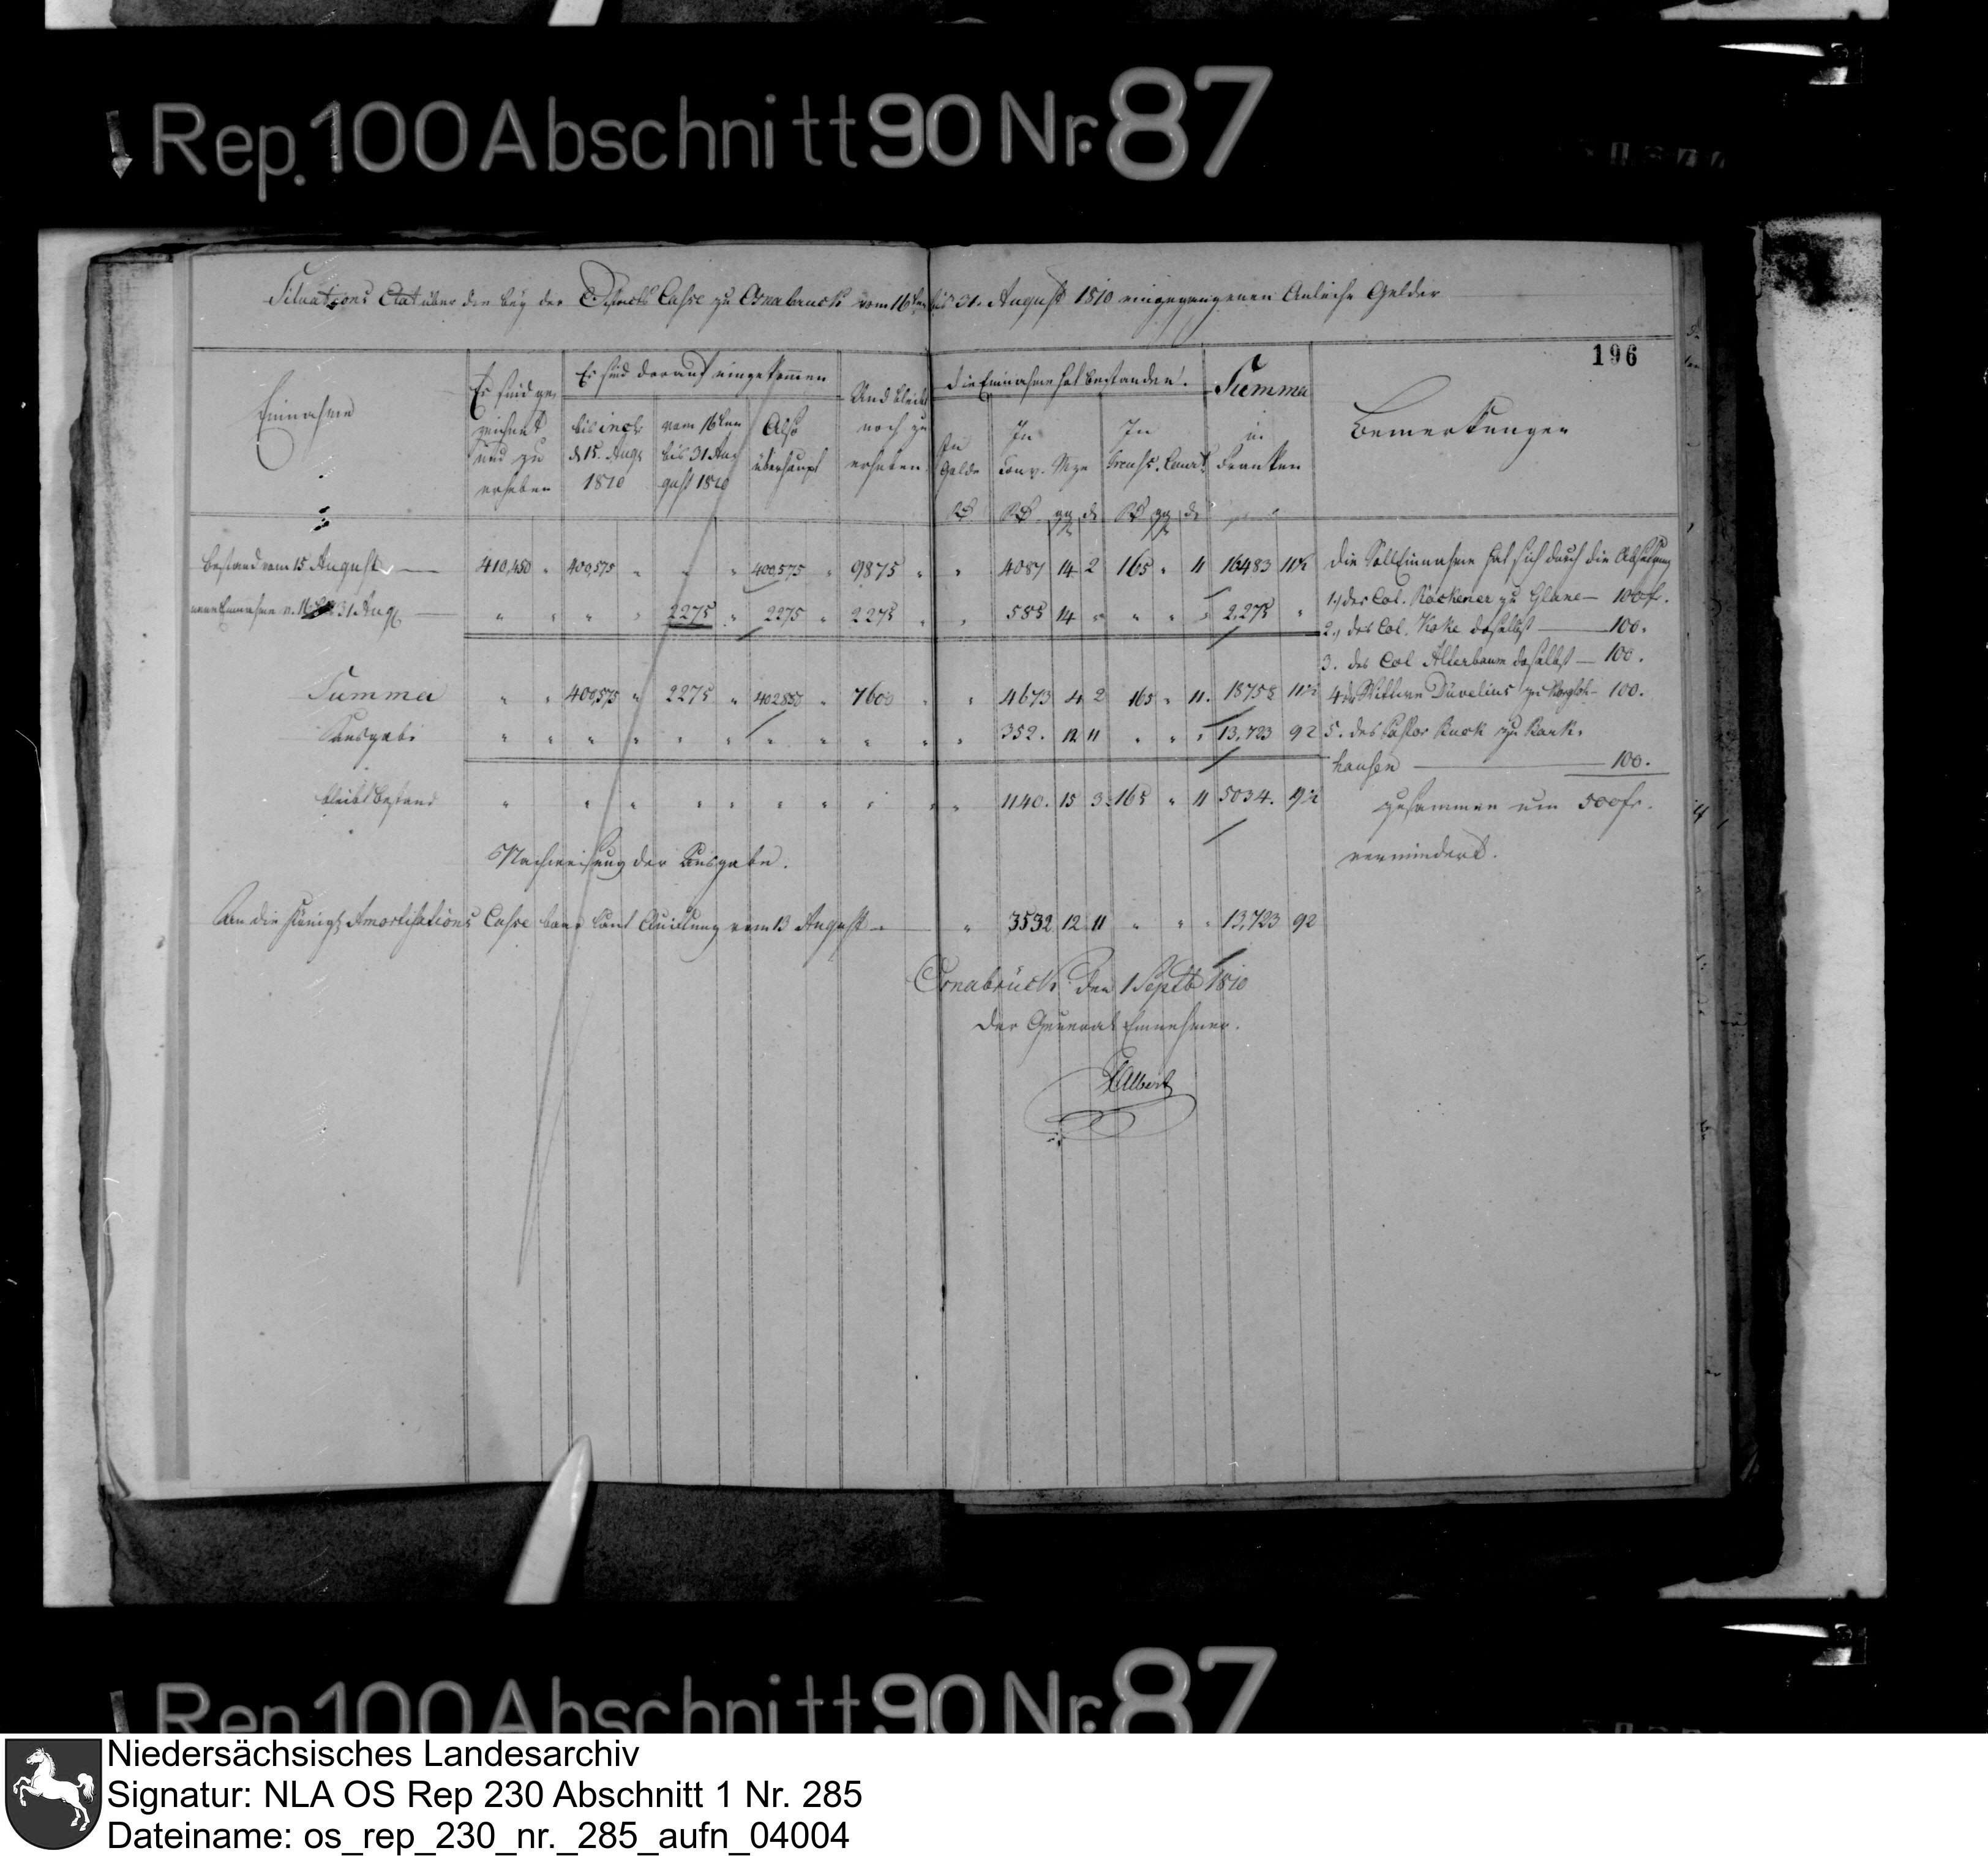 Rep. 100 Abschnitt 90 Nr. 87
Situations Etat über die bey der Districts Casse zu Osnabruck vom 16ten bis 31. August 1810 eingegangenen Anleihe Gelder
196
Einnahme
Es sind gezeichnet und zu erheben
Es sind darauf eingekommen
bis incl. d 15. Aug. 1810
vom 16ten bis 31 August 1810
Also überhaupt
Und bleibt noch zu erheben
die Einnahme hat bestanden.
In Golde
In Conv. Mze
In Preuss. Court
Summa in Franken
Bemerkungen
Rt Rt gg d Rt gg d
Bestand vom 15 August 410,450 " 400,575 " " " 400,575 " 9875 " " 4087 14 2 165 " 11 16483 11
neue Einnahme v. 16. bis 31 Aug. " " " " 2275 " 2275 " 2275 " " 585 14 " " " " 2,275 "
Summa " " 400,575 " 2275 " 402850 " 7600 " " 4673 4 2 165 " 11. 18758 11
Ausgabe " " " " " " " " " " " 352. 12 11 " " " 13,723 92
bleibt Bestand " " " " " " " " " " 1140. 15 3 165 " 11 5034. 19
die Soll Einnahme hat sich durch die Absetzung
1.) des Col. Röckener zu Glane — 100 fr.
2.) des Col. Koke daselbst — 100.
3. des Col Alterbaum daselbst — 100.
4. der Wittwe Düvelius zu — 100.
5. des Pastor Kuck zu Bark-
hausen — 100.
zusammen um 500 fr.
vermindert.
Nachweisung der Ausgabe.
An die Königl. Amortisations Casse baar laut Quittung vom 13 August — " 3532 12 11 " " " 13,723 92
Osnabrück den 1 Septb 1810
Der General Einnehmer.
Albert
Rep. 100 Abschnitt 90 Nr. 87
Niedersächsisches Landesarchiv
Signatur: NLA OS Rep 230 Abschnitt 1 Nr. 285
Dateiname: os_rep_230_nr._285_aufn_04004